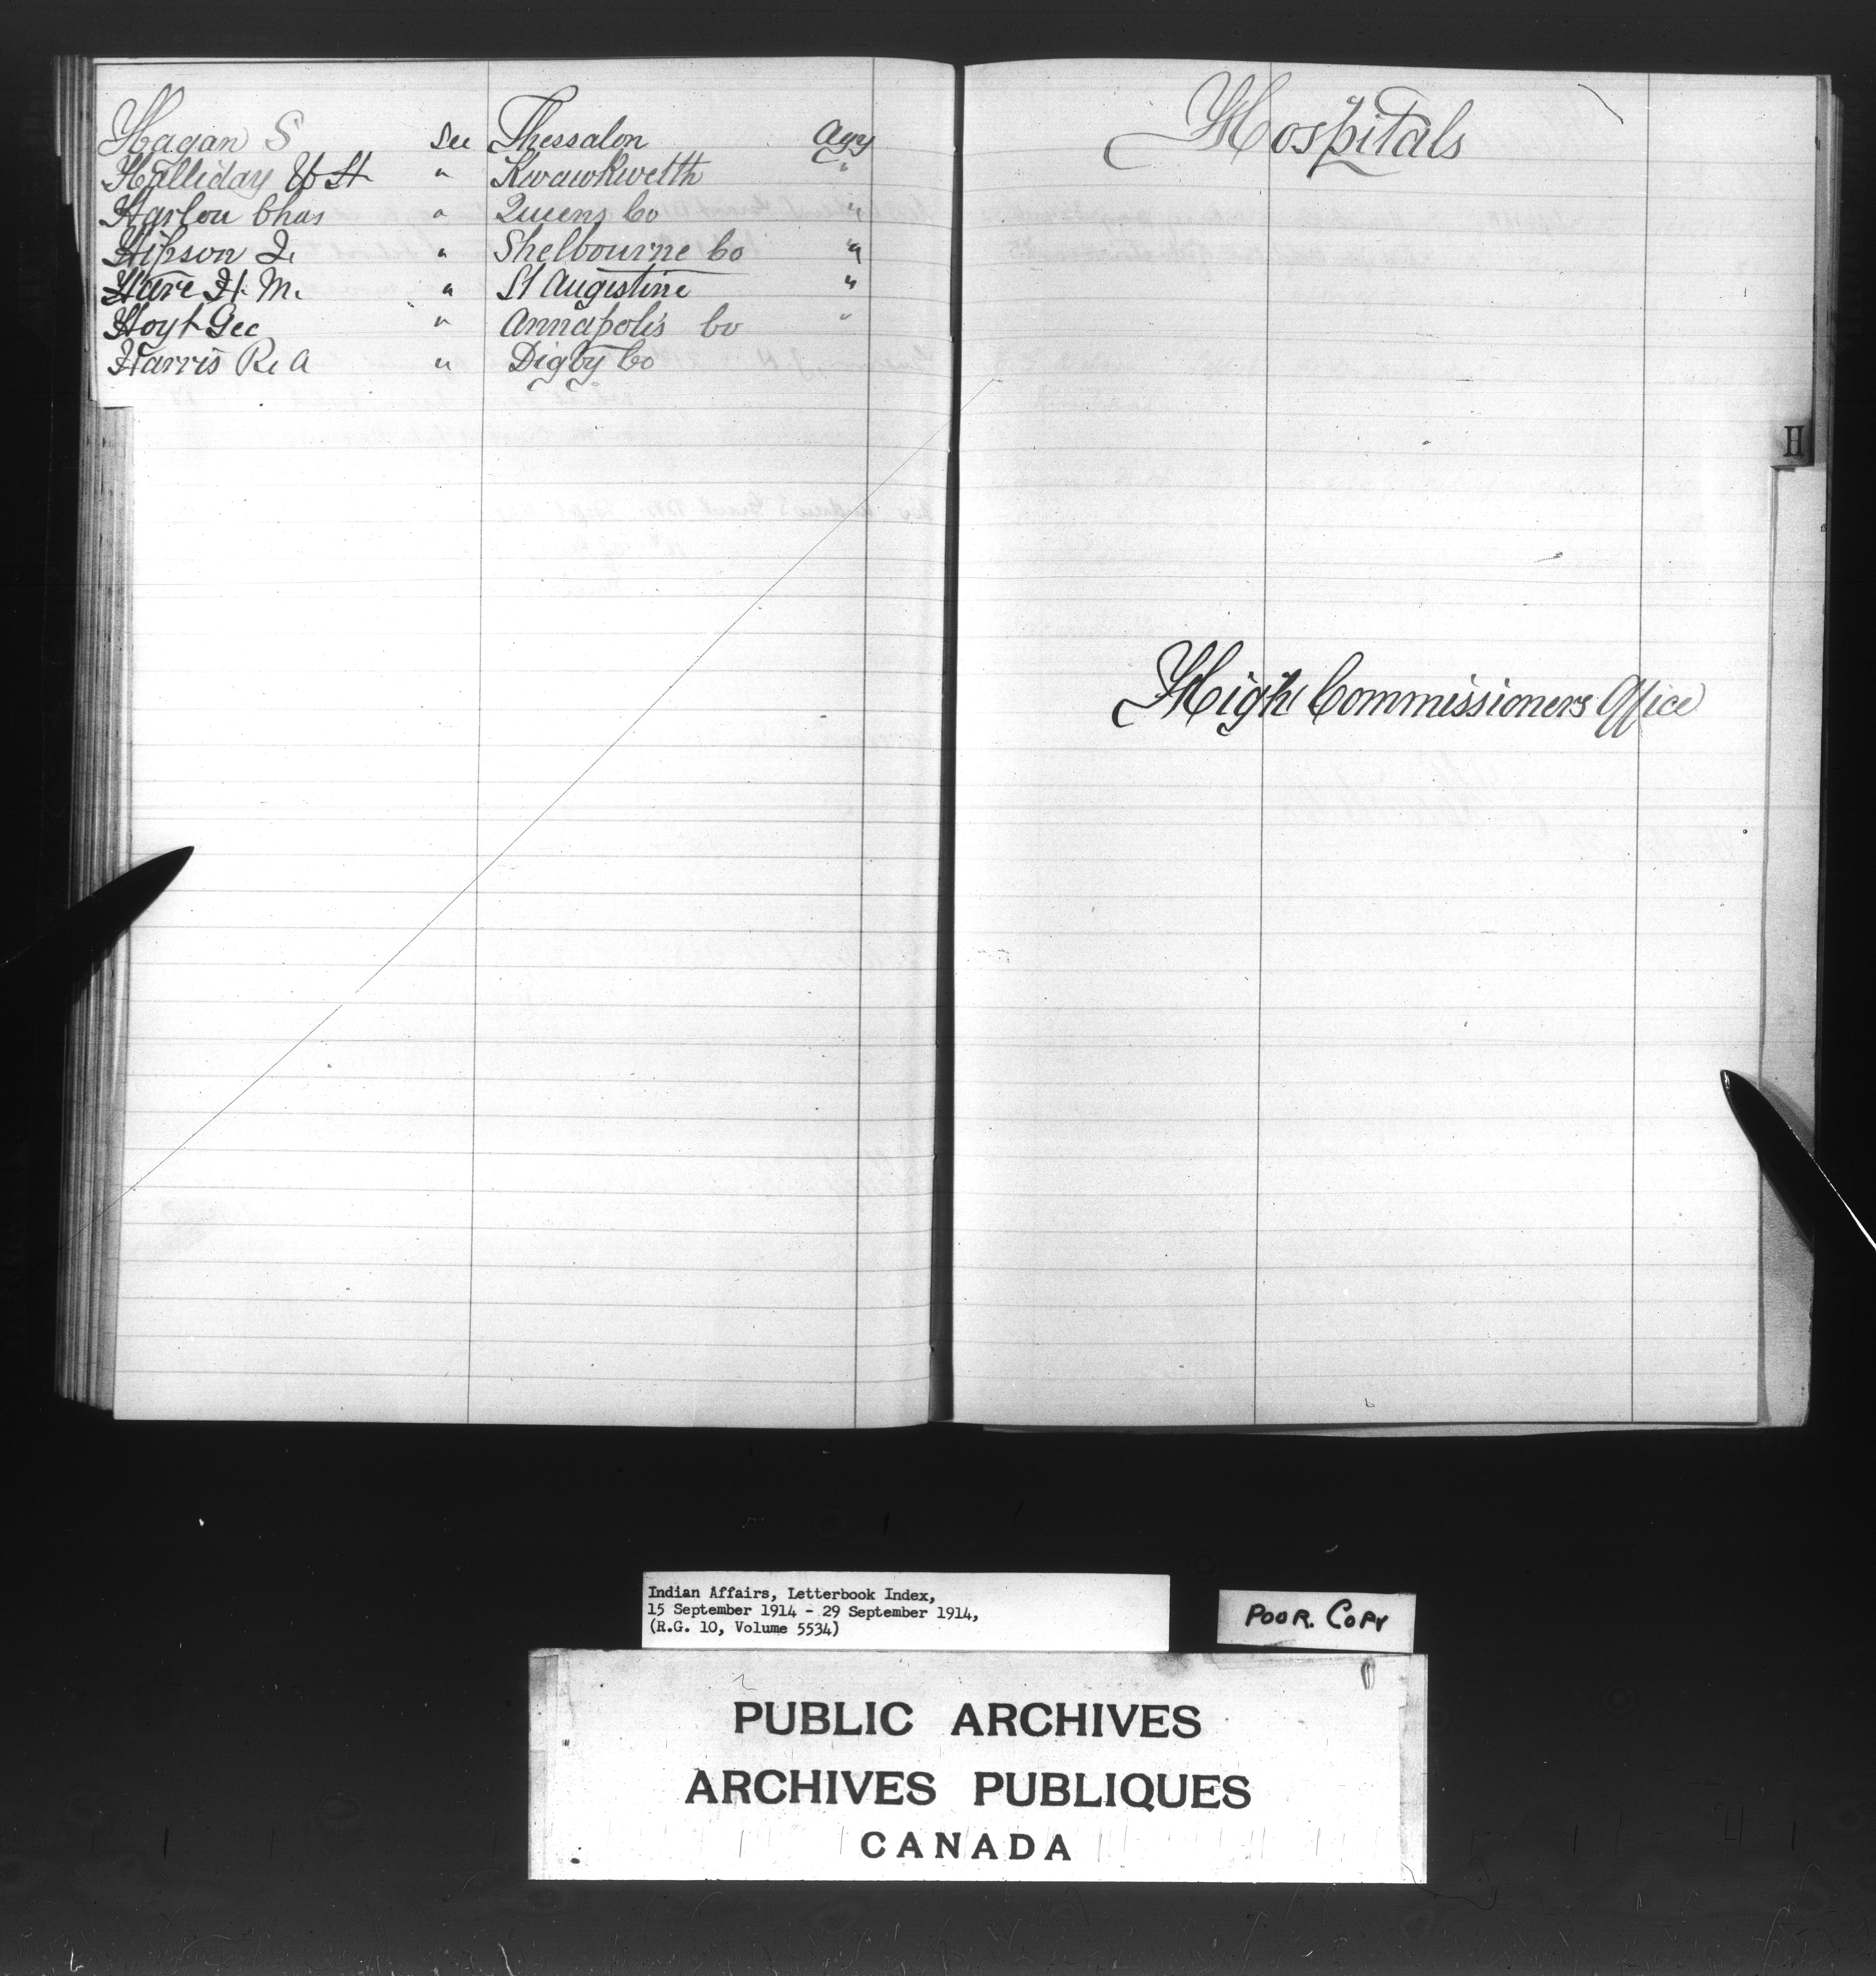 Hagan S See Thessalon Agy
Halliday W H " Kwawkwelth "
Harlow Chas " Queens Co "
Hipson J. " Shelbourne Co "
Hare H. M. " St Augustine "
Hoyt Geo " Annapolis Co "
Harris R. A " Digby Co
Hospitals
H
High Commissioners Office
Indian Affairs, Letterbook Index,
15 September 1914 - 29 September 1914,
(R.G. 10, Volume 5534)
POOR. COPY
PUBLIC ARCHIVES
ARCHIVES PUBLIQUES
CANADA